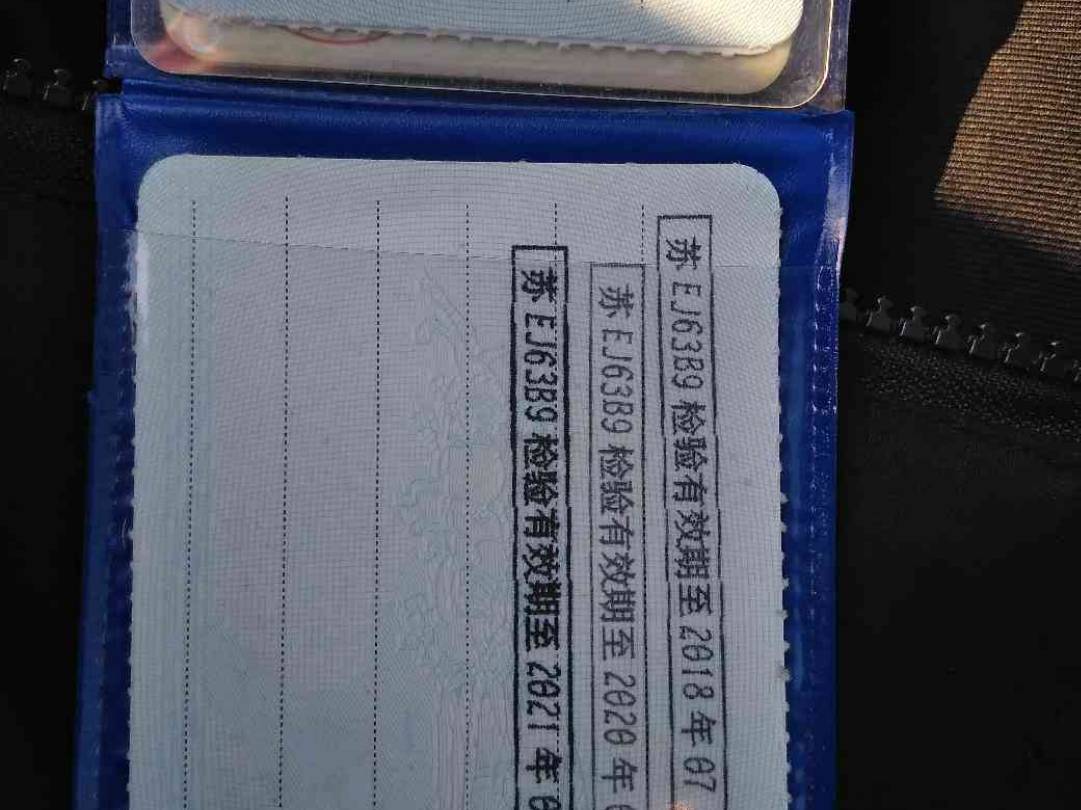 苏EJ63B9检验有效期至2018年07
苏EJ63B9检验有效期至2020年0
苏EJ63B9检验有效期至2021年0